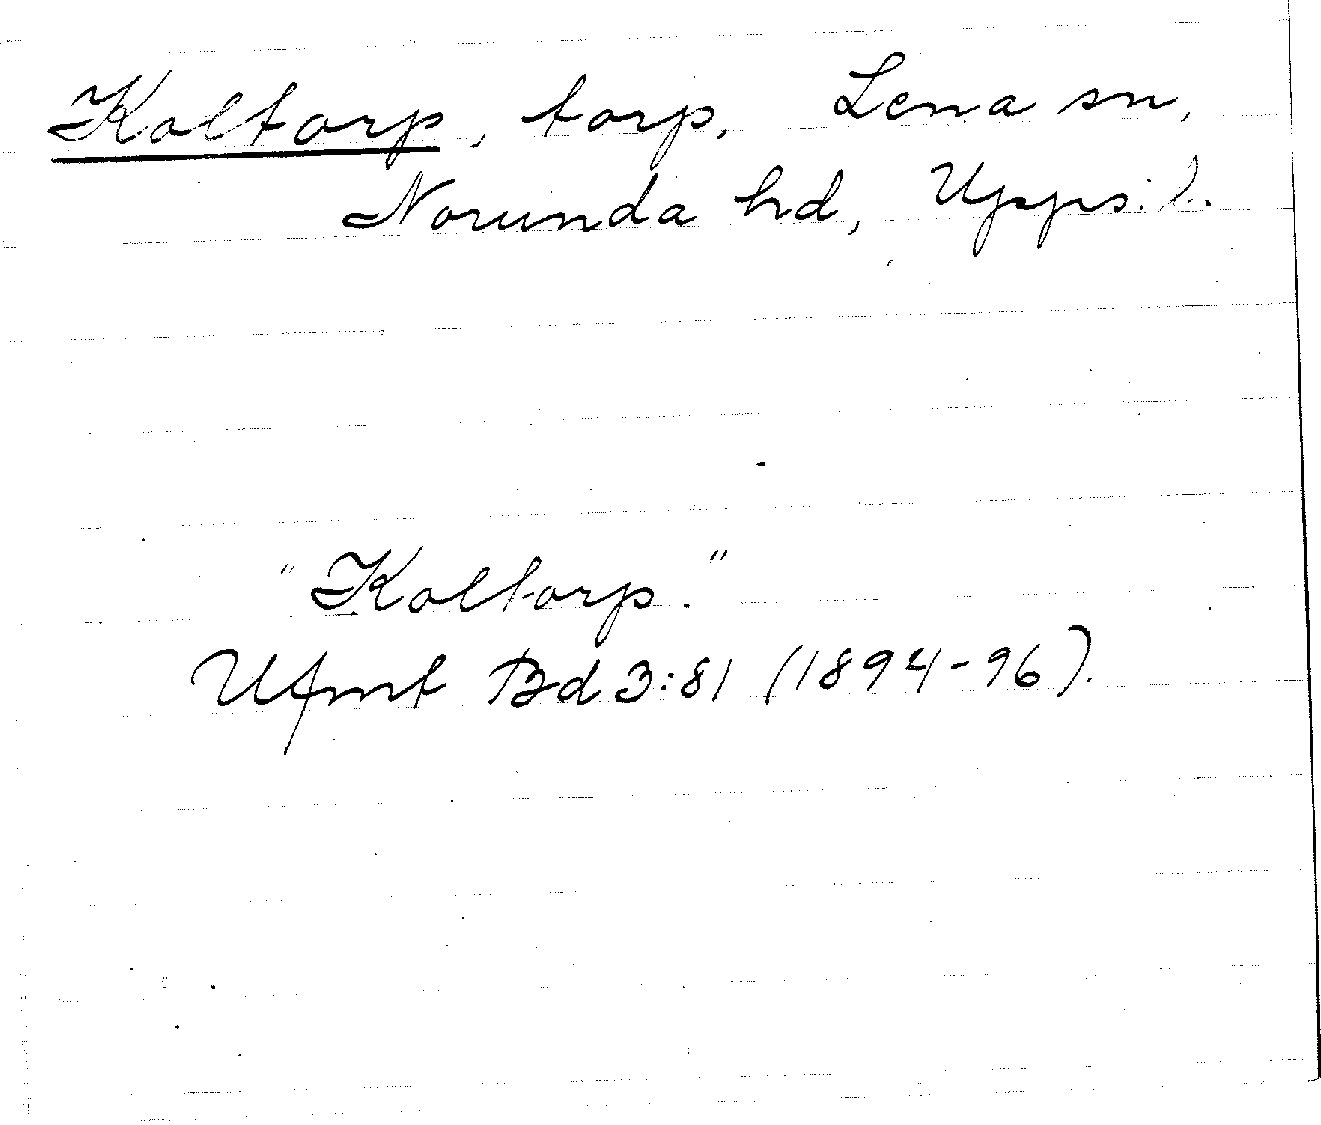 Koltorp, torp, Lena sn,
Norunda hd, Upps. l.
"Koltorp."
Ufmt Bd 3:81 (1894-96).